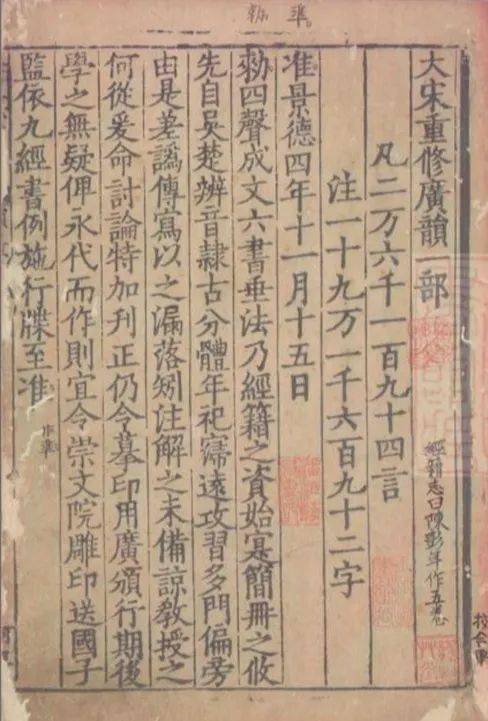 大宋重修廣韻一部
經籍志曰陳彭年作五卷
凡二万六千一百九十四言
注一十九万一千六百九十二字
准景德四年十一月十五日
勑四聲成文六書垂法乃經籍之資始寔簡冊之攸
先自吳楚辨音隸古分體年祀寖遠攻習多門偏旁
由是差譌傳寫以之漏落矧注解之未備諒教授之
何從爰命討論特加刊正仍令摹印用廣頒行期後
學之無疑俾永代而作則宜令崇文院雕印送國子
監依九經書例施行牒至准
作準
準